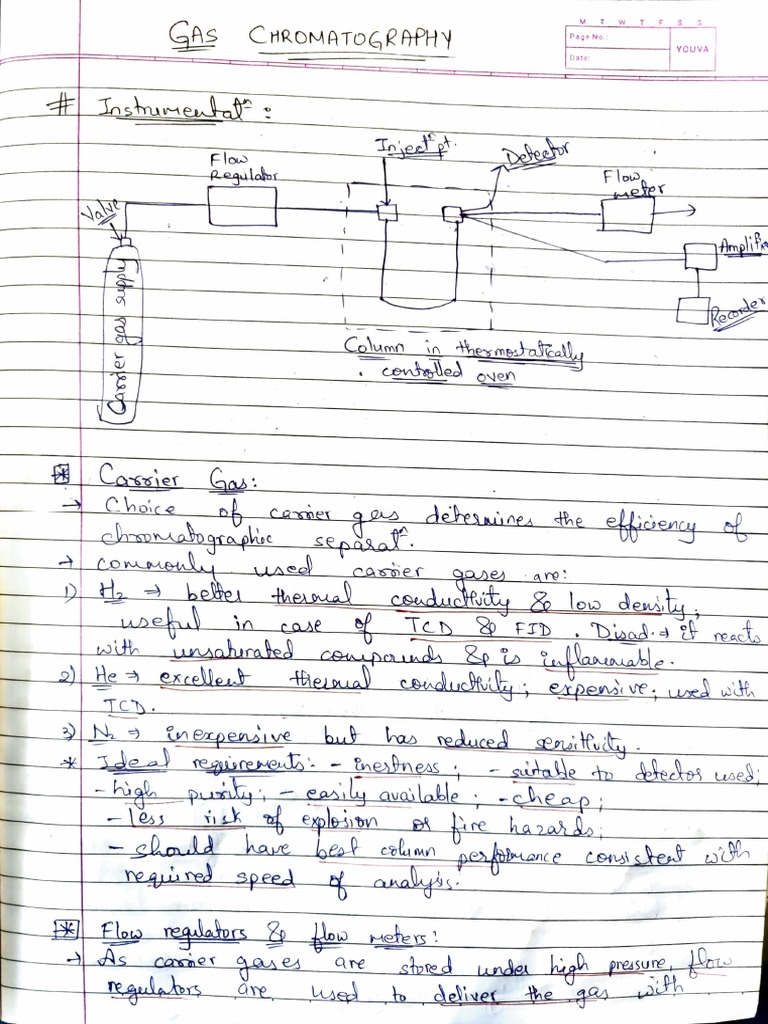 GAS CHROMATOGRAPHY
M T W T F S S
Page No.:
YOUVA
Date:
# Instrumentatⁿ :
Injectⁿ pt.
Detector
Flow Regulator
Flow meter
Valve
Carrier gas supply
Amplifie
Recorder
Column in thermostatically
controlled oven
* Carrier Gas:
→ Choice of carrier gas determines the efficiency of
chromatographic separatⁿ.
→ commonly used carrier gases are:
1) H₂ → better thermal conductivity & low density;
useful in case of TCD & FID. Disad. → it reacts
with unsaturated compounds & is inflammable.
2) He → excellent thermal conductivity; expensive; used with
TCD.
3) N₂ → inexpensive but has reduced sensitivity.
* Ideal requirements: - inertness; - suitable to detector used;
- high purity; - easily available; - cheap;
- less risk of explosion or fire hazards;
- should have best column performance consistent with
required speed of analysis.
* Flow regulators & flow meters:
→ As carrier gases are stored under high pressure, flow
regulators are used to deliver the gas with